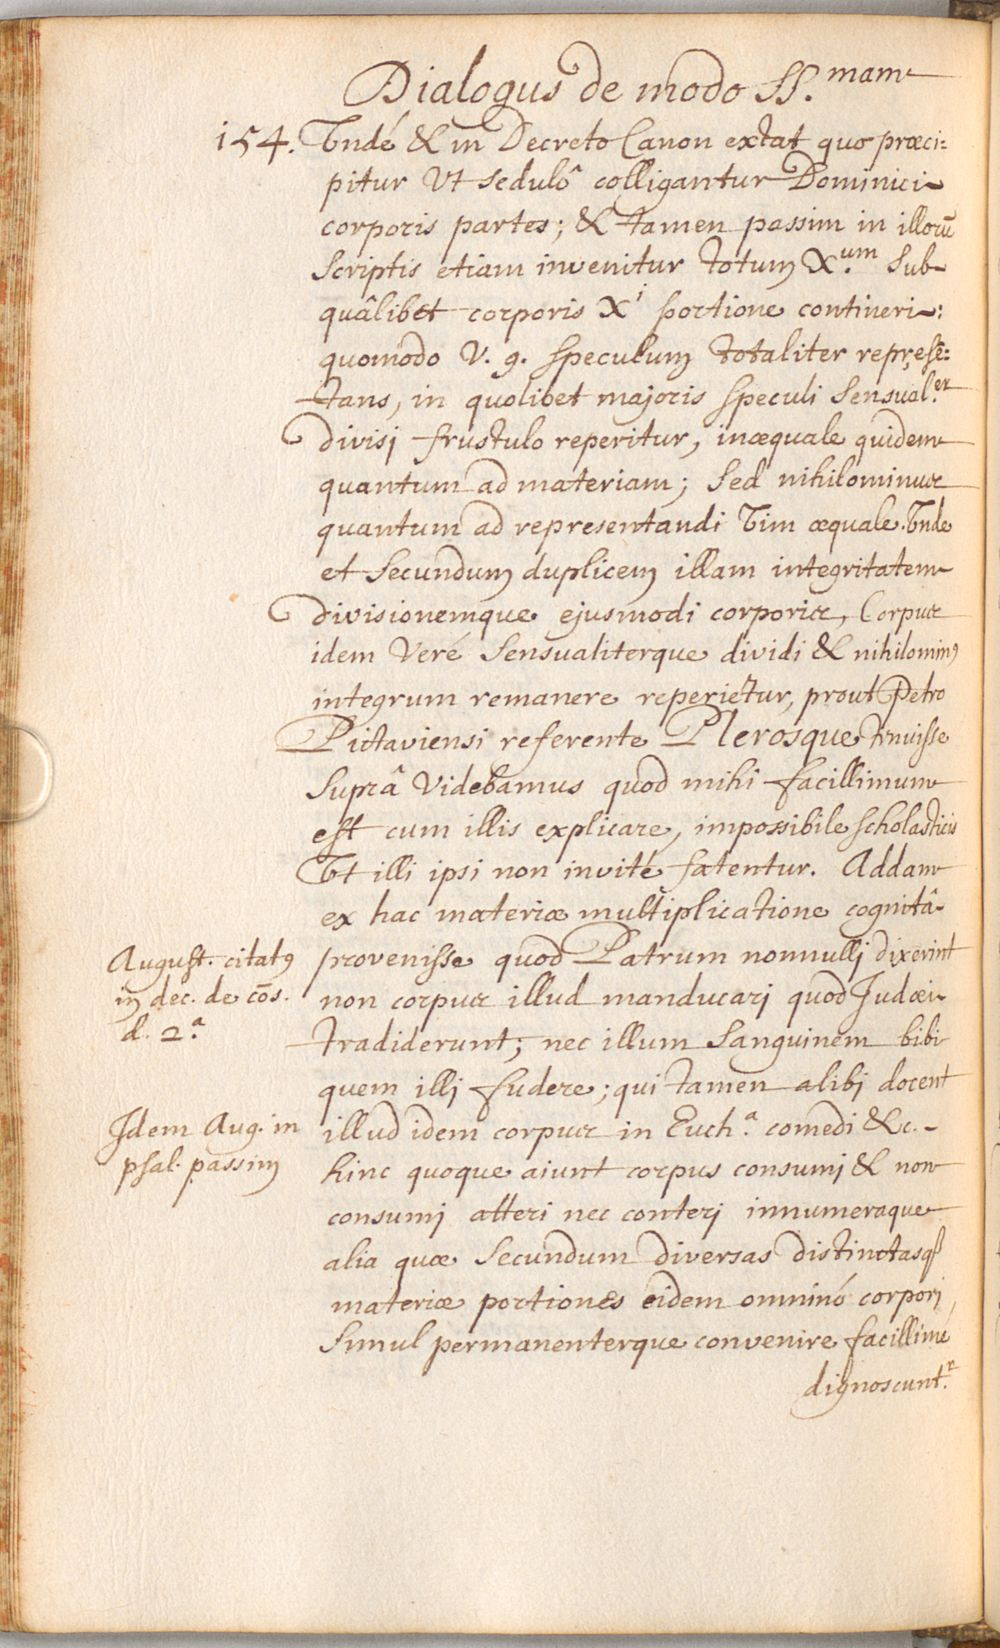 Dialogus de modo SS.mam
154. Vndé & in Decreto Canon extat quo præci=
pitur Vt sedulô colligantur Dominici
corporis partes; & tamen passim in illorū
scriptis etiam invenitur totum X.um sub
quâlibet corporis Xi portione contineri:
quomodo V. g. speculum totaliter represē=
tans, in quolibet majoris speculi sensual.er
divisi frustulo reperitur, inæquale quidem
quantum ad materiam; sed nihilominus
quantum ad representandi Vim æquale. Vnde
et secundum duplicem illam integritatem
divisionemque ejusmodi corporis, Corpus
idem Veré sensualiterque dividi & nihilominꝰ
integrum remanere reperietur, prout Petro
Pictaviensi referente Plerosque tenuisse
suprâ Videbamus quod mihi facillimum
est cum illis explicare, impossibile scholasticis
Vt illi ipsi non invité fatentur. Addam
ex hac materiæ multiplicatione cognitâ
provenisse quod Patrum nonnulli dixerint
non corpus illud manducari quod Judæi
tradiderunt; nec illum sanguinem bibi
quem illi fudere; qui tamen alibi docent
illud idem corpus in Euch.a comedi &c.
hinc quoque aiunt corpus consumi & non
consumi atteri nec conteri innumeraque
alia quæ secundum diversas distinctasq3
materiæ portiones eidem omninó corpori,
simul permanenterque convenire facillimé
dignoscunt.r
August. citatꝰ
in dec. de cōs.
d. 2.a
Idem Aug. in
psal. passim